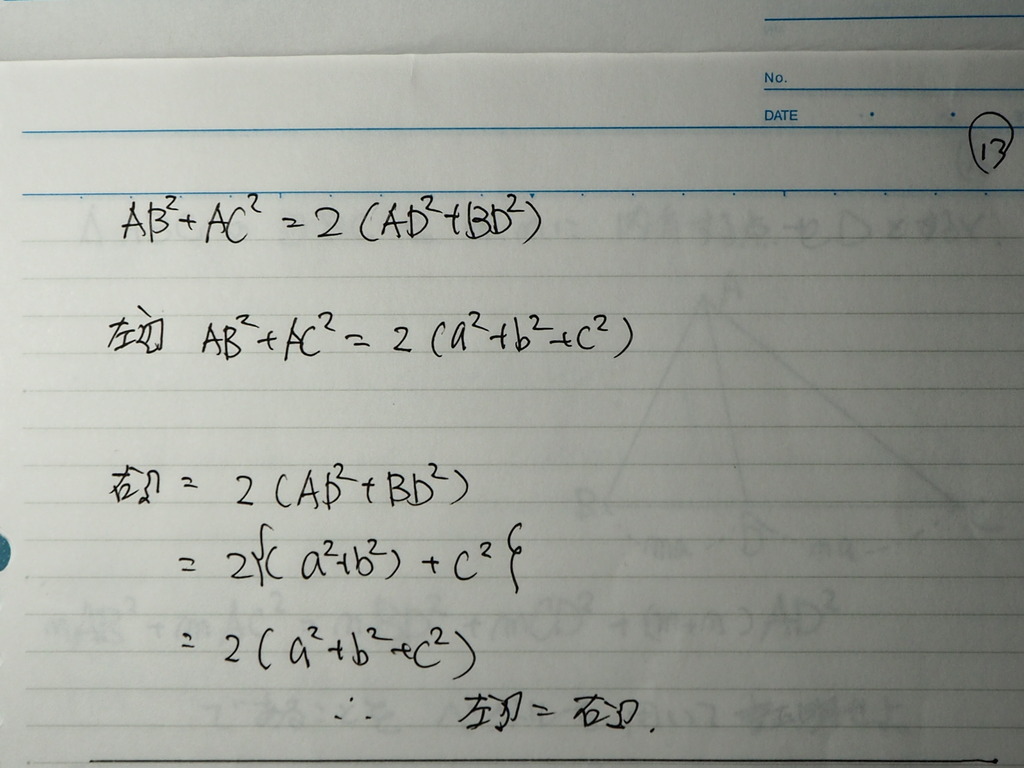 No.
DATE
13
AB²+AC² = 2 (AD²+BD²)
左辺 AB²+AC² = 2 (a²+b²+c²)
右辺 = 2 (AD²+BD²)
= 2{(a²+b²) + c²}
= 2 (a²+b²+c²)
∴ 左辺 = 右辺.